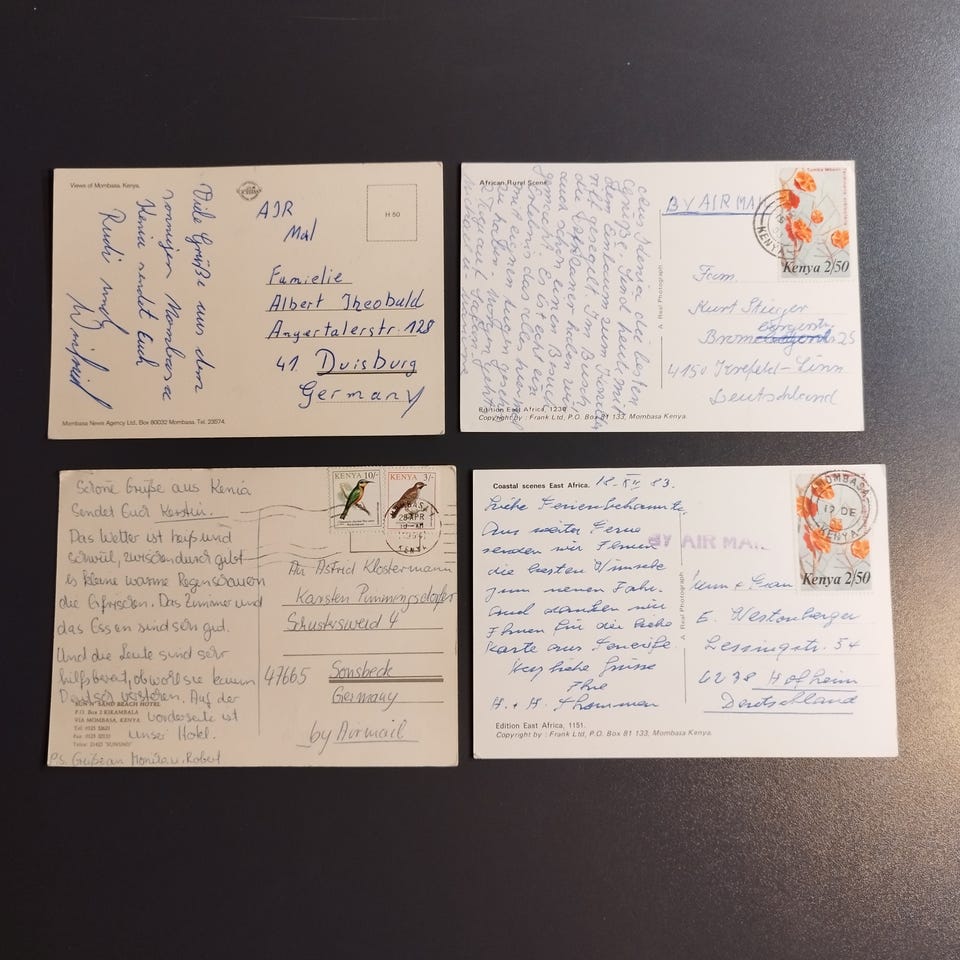 Views of Mombasa, Kenya.
Viele Grüße aus dem
sonnigen Mombasa
Kenia sendet Euch
Rudi und
Winfried
AIR
Mal
H 80
Famielie
Albert Theobald
Angertalerstr. 128
41 Duisburg
Germany
Mombasa News Agency Ltd., Box 80032 Mombasa. Tel. 23574.
African Rural Scene
Aus Kenia die besten
Grüße. Sind heute mit
dem Einbaum zum
mit gesegelt. Im Busch
auch schon einen Besuch
gemacht. Es ist echt ein
Erlebnis das alles hier
mit eigenen Augen gesehen
zu haben. Morgen geht
BY AIR MAIL
KENYA
Kenya 2/50
Fam.
Kurt Stieger
25
4150 Krefeld-Linn
Deutschland
A Real Photograph
Edition East Africa, 1230
Copyright by : Frank Ltd, P.O. Box 81 133, Mombasa Kenya.
Schöne Grüße aus Kenia
Sendet Euch Kerstin.
Das Wetter ist heiß und
schwül, zwischendurch gibt
es kleine warme Regenschauern
die Erfrischen. Das Zimmer und
das Essen sind sehr gut.
Und die Leute sind sehr
hilfsbereit, obwohl sie kaum
Deutsch verstehen. Auf der
Vorderseite ist
unser Hotel.
P.S. Grüße an Monika u. Robert
SUN 'N' SAND BEACH HOTEL
P.O. Box 2 KIKAMBALA
VIA MOMBASA, KENYA
KENYA 10/-
KENYA 3/-
MOMBASA
28 APR
KENYA
An Astrid Klostermann
Karsten Pimmingsdorfer
Schustersweid 4
47665 Sonsbeck
Germany
by Airmail
Coastal scenes East Africa.
18. XII. 83.
Liebe Ferienbekannte,
Aus weiter Ferne
senden wir Ihnen
die besten Wünsche
zum neuen Jahr.
und danken wir
Ihnen für die liebe
Karte aus Teneriffa.
Herzliche Grüsse
Ihre
H. + H. Thommen
BY AIR MAIL
MOMBASA
19 DE
KENYA
Kenya 2/50
E. Westenberger
Lessingstr. 54
6238 Hofheim
Deutschland
A Real Photograph
Edition East Africa, 1151.
Copyright by : Frank Ltd, P.O. Box 81 133, Mombasa Kenya.